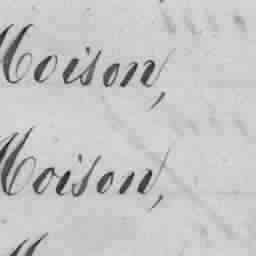 Moison,
Moison,